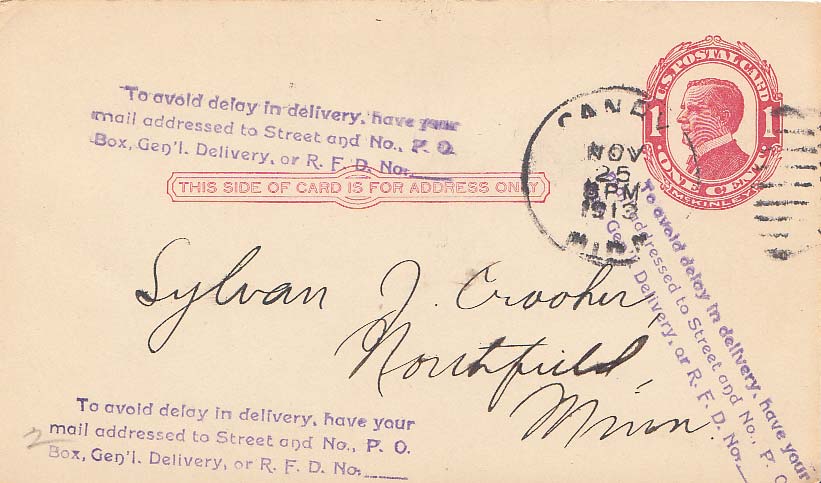 U.S. POSTAL CARD
1 1
· ONE CENT ·
McKINLEY
To avoid delay in delivery, have your
mail addressed to Street and No., P. O.
Box, Gen'l. Delivery, or R. F. D. No.
THIS SIDE OF CARD IS FOR ADDRESS ONLY
NOV
25
PM
1913
MINN
Sylvan J. Crooker
Northfield,
Minn.
To avoid delay in delivery, have your
addressed to Street and No., P. O.
Gen'l Delivery, or R. F. D. No.
To avoid delay in delivery, have your
mail addressed to Street and No., P. O.
Box, Gen'l. Delivery, or R. F. D. No.
2